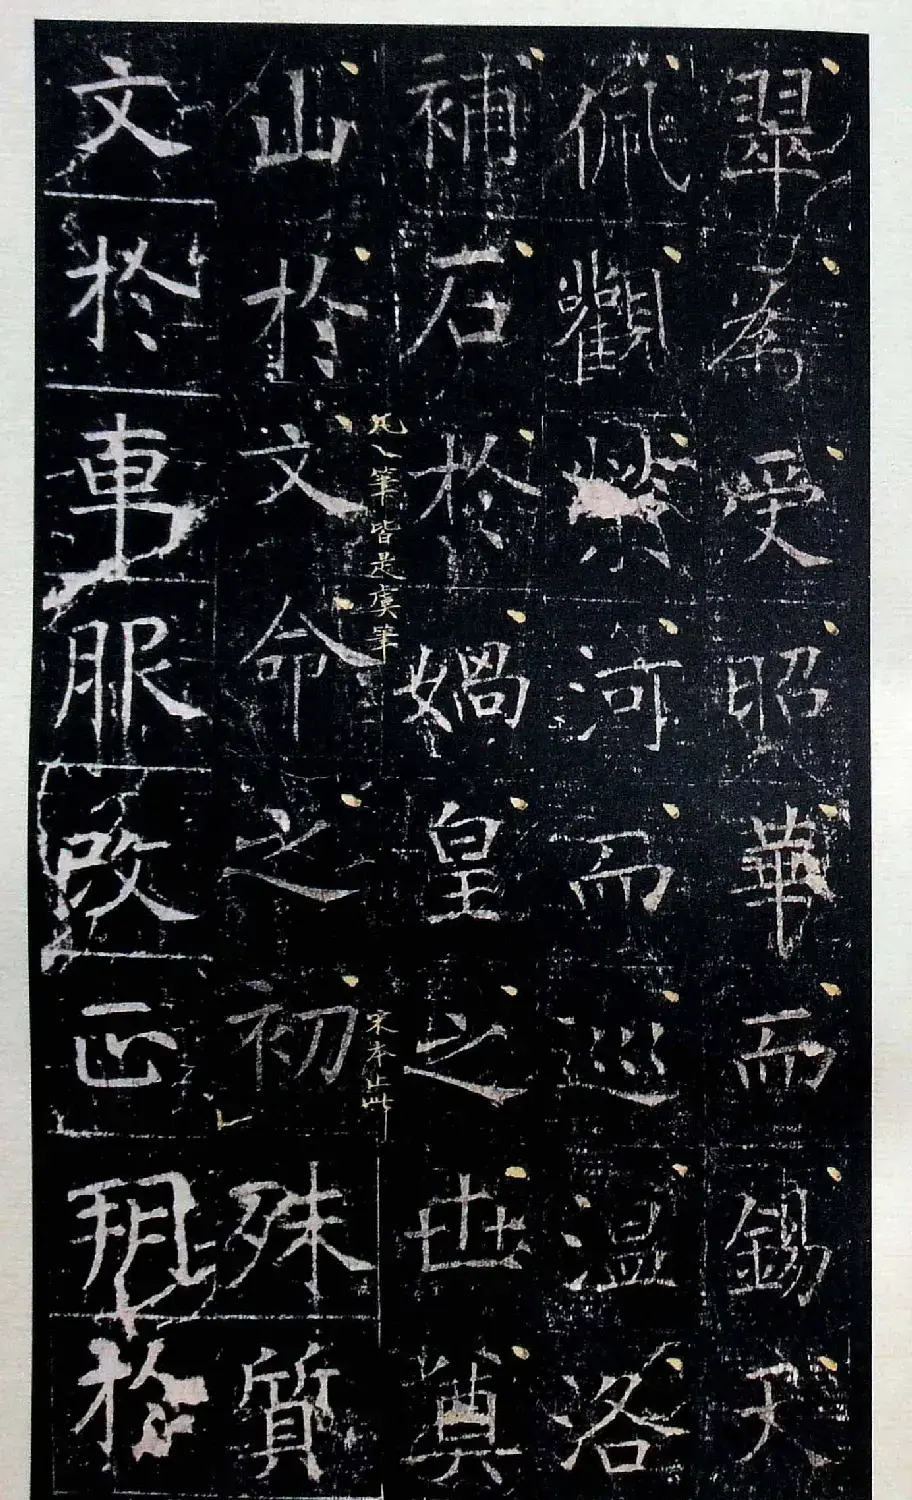 翠為受昭華而錫天
佩觀榮河而巡温洛
補石於媧皇之世奠
凡、筆皆是虞筆
宋本止此
山於文命之初殊質
文於車服改正朔於